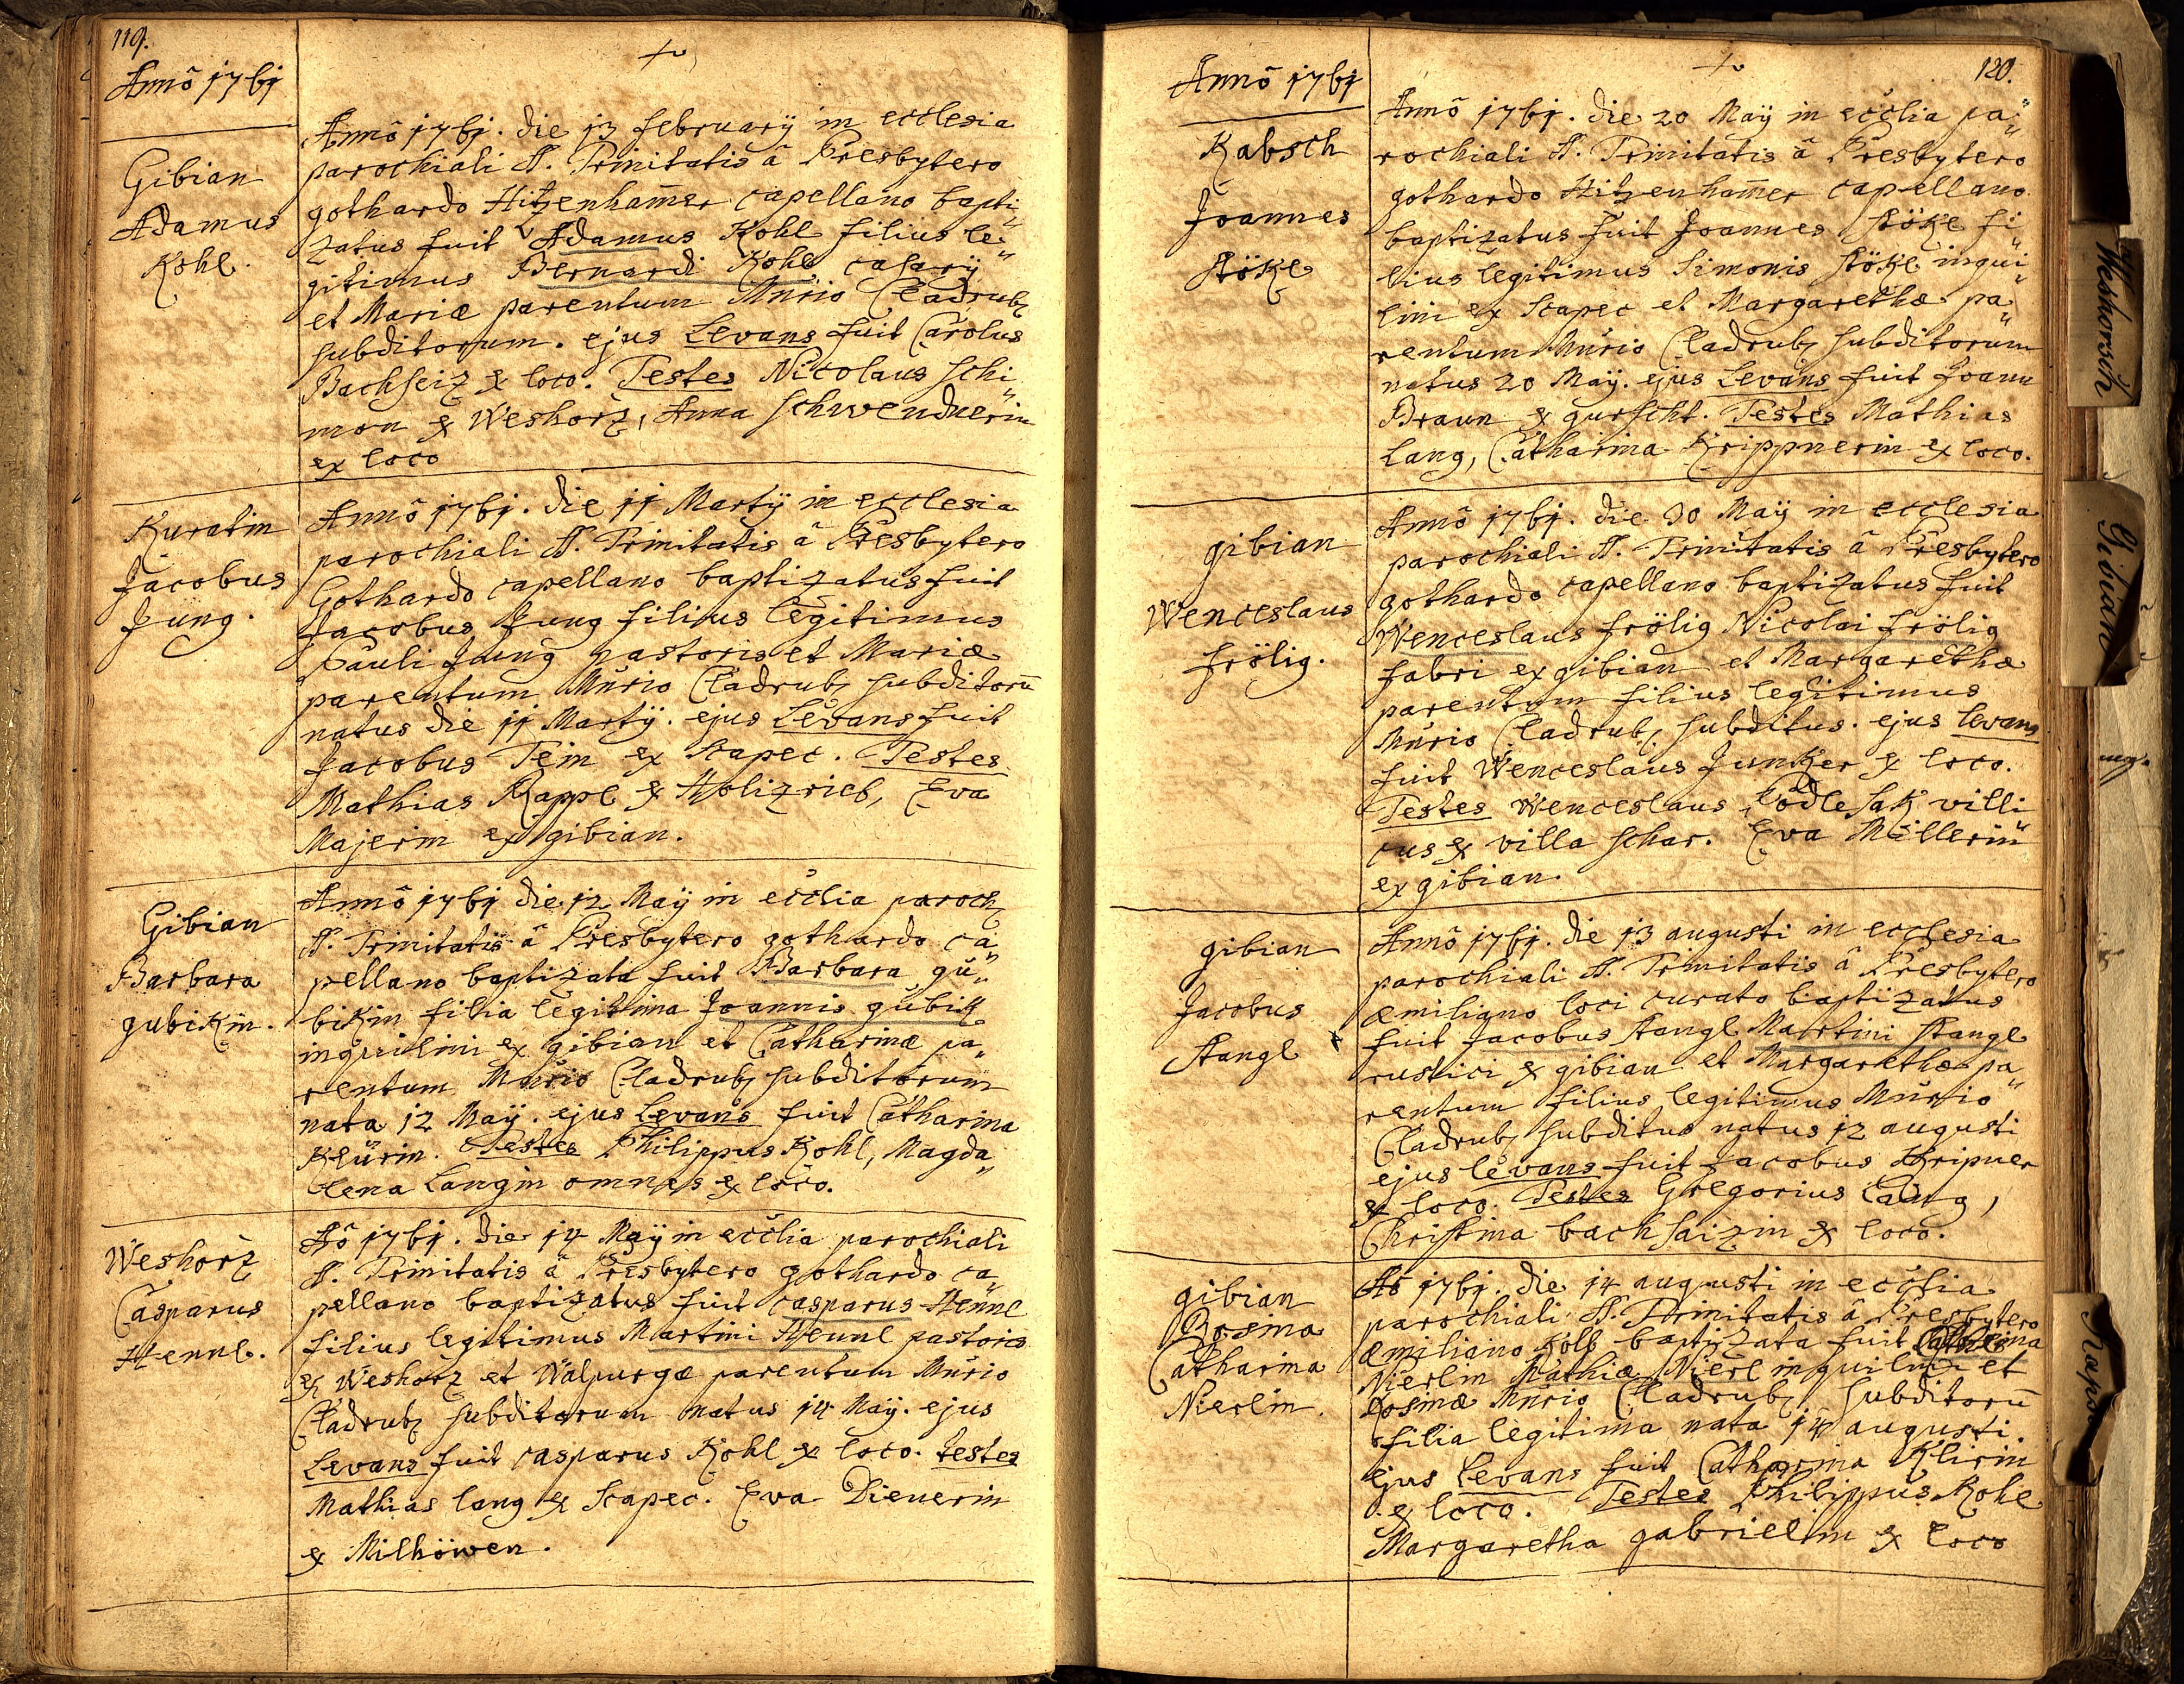 119.
Annô 1761
Gibian
Adamus
Kohl.
Annô 1761. die 13 february in ecclesia
parochiali SS. Trinitatis â Presbytero
gothardo Hitzenham̄er capellano bapti„
zatus fuit Adamus Kohl filius le„
gitimus Bernardi Kohl casarÿ
et Mariæ parentum Mūrio Cladrub,
subditorum. ejus Levans fuit Carolus
Bachseiz ex loco. Testes Nicolaus Schi„
mon ex Weshorz, Anna Schwendnerin
ex loco
Kuratin
Jacobus
Jung.
Annô 1761. die 11 Martÿ in ecclesia
parochiali SS. Trinitatis â Presbytero
Gothardo capellano baptizatus fuit
Jacobus Jung filius legitimus
Pauli Jung pastoris et Mariæ
parentum Mūrio Cladrub, subditorū
natus die 11 Martÿ. ejus Levans fuit
Jacobus Tein ex Scapec. Testes
Mathias Rappl ex Holizrieb, Eva
Majerin ex gibian.
Gibian
Barbara
gubikin.
Annô 1761 die 12 Maÿ in ecclia paroch,
SS. Trinitatis â Presbytero gothardo ca„
pellano baptizata fuit Barbara gu„
bikin filia legitima Joannis gubik
inquilini ex gibian et Catharinæ pa„
rentum Mūrio Cladrub, subditorum
nata 12 Maÿ. ejus Levans fuit Catharina
Klürin. Testes Philippus Kohl, Magda„
lena Langin omnes ex loco.
Weshorz
Casparus
Hennl.
Aō 1761. die 14 Maÿ in ecclia parochiali
SS. Trinitatis â Presbytero gothardo ca„
pellano baptizatus fuit casparus Hennl
filius legitimus Martini Hennl pastoris
ex Weshorz et Walpurgæ parentum Mūrio
Cladrub, subditorum natus 14 Maÿ. ejus
Levans fuit casparus Kohl ex loco. testes
Mathias lang ex Scapec. Eva Dienerin
ex Milhöwen.
120.
Annô 1761
Kabsch
Joannes
Stökl
Annô 1761. die 20 Maÿ in ecclia pa„
rochiali SS. Trinitatis â Presbytero
gothardo Hitzenham̄er capellano
baptizatus fuit Joannes Stökl fi„
lius legitimus Simonis Stökl inqui„
lini ex Scapec et Margarethæ pa„
rentum Mūrio Cladrub, subditorum
natus 20 Maÿ. ejus Levans fuit Joann
Braun ex gurscht. Testes Mathias
Lang, Catharina Krippnerin ex loco.
gibian
Wenceslaus
frölig.
Annô 1761. die 30 Maÿ in ecclesia
parochiali SS. Trinitatis â Presbytero
gothardo capellano baptizatus fuit
Wenceslaus frölig Nicolai frölig
fabri ex gibian et Margarethæ
parentum filius legitimus
Mūrio Cladrub, subditus. ejus Levans
fuit Wenceslaus Junker ex loco.
Testes Wenceslaus Podlesak villi„
cus ex villa Schar. Eva Müllerin
ex gibian.
gibian
Jacobus
Stangl
Annô 1761. die 13 augusti in ecclesia
parochiali SS. Trinitatis â Presbytero
æmiliano loci curato baptizatus
fuit Jacobus Stangl Martini Stangl
rustici ex gibian et Margarethæ pa„
rentum filius legitimus Mūrio
Cladrub, subditus natus 12 augusti
ejus levans fuit Jacobus Kripner
ex loco. Testes Gregorius Lang,
Christina bachsaizin ex loco.
gibian
Rosina
Catharina
Nierlin.
Aō 1761. die 14 augusti in ecclia
parochiali SS. Trinitatis â Presbytero
æmiliano Kolb baptizata fuit Catharina
Nierlin Mathiæ Nierl inquilini et
Rosinæ Mūrio Cladrub, subditorū
filia legitima nata 14 augusti.
ejus Levans fuit Catharina Klirin
ex loco. Testes Philippus Kohl
Margaretha gabrielin ex loco
Weshorsch
Gibian